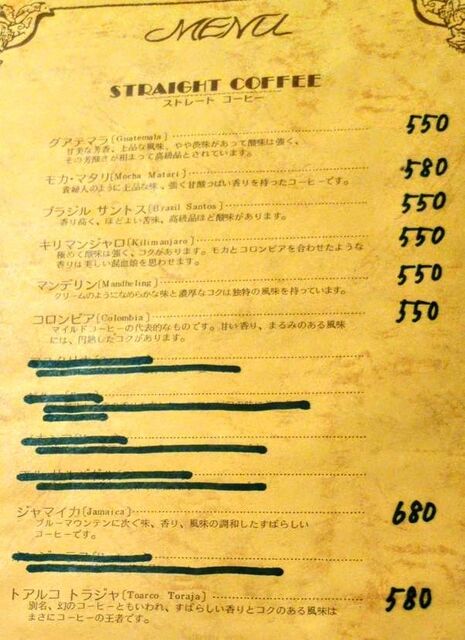 MENU
STRAIGHT COFFEE
ストレート コーヒー
グアテマラ(Guatemala) 550
甘美な芳香、上品な風味、やや渋味があって酸味は強く、
その芳醇さが相まって高級品とされています。
モカ・マタリ(Mocha Matari) 580
貴婦人のように上品な味、強く甘酸っぱい香りを持ったコーヒーです。
ブラジル サントス(Brazil Santos) 550
香り高く、ほどよい苦味、高級品ほど酸味があります。
キリマンジャロ(Kilimanjaro) 550
極めて酸味は強く、コクがあります。モカとコロンビアを合わせたような
香りは美しい混血娘を思わせます。
マンデリン(Mandheling) 550
クリームのようになめらかな味と濃厚なコクは独特の風味を持っています。
コロンビア(Colombia) 550
マイルドコーヒーの代表的なものです。甘い香り、まるみのある風味
には、円熟したコクがあります。
ジャマイカ(Jamaica) 680
ブルーマウンテンに次ぐ味、香り、風味の調和したすばらしい
コーヒーです。
トアルコ トラジャ(Toarco Toraja) 580
別名、幻のコーヒーともいわれ、すばらしい香りとコクのある風味は
まさにコーヒーの王者です。